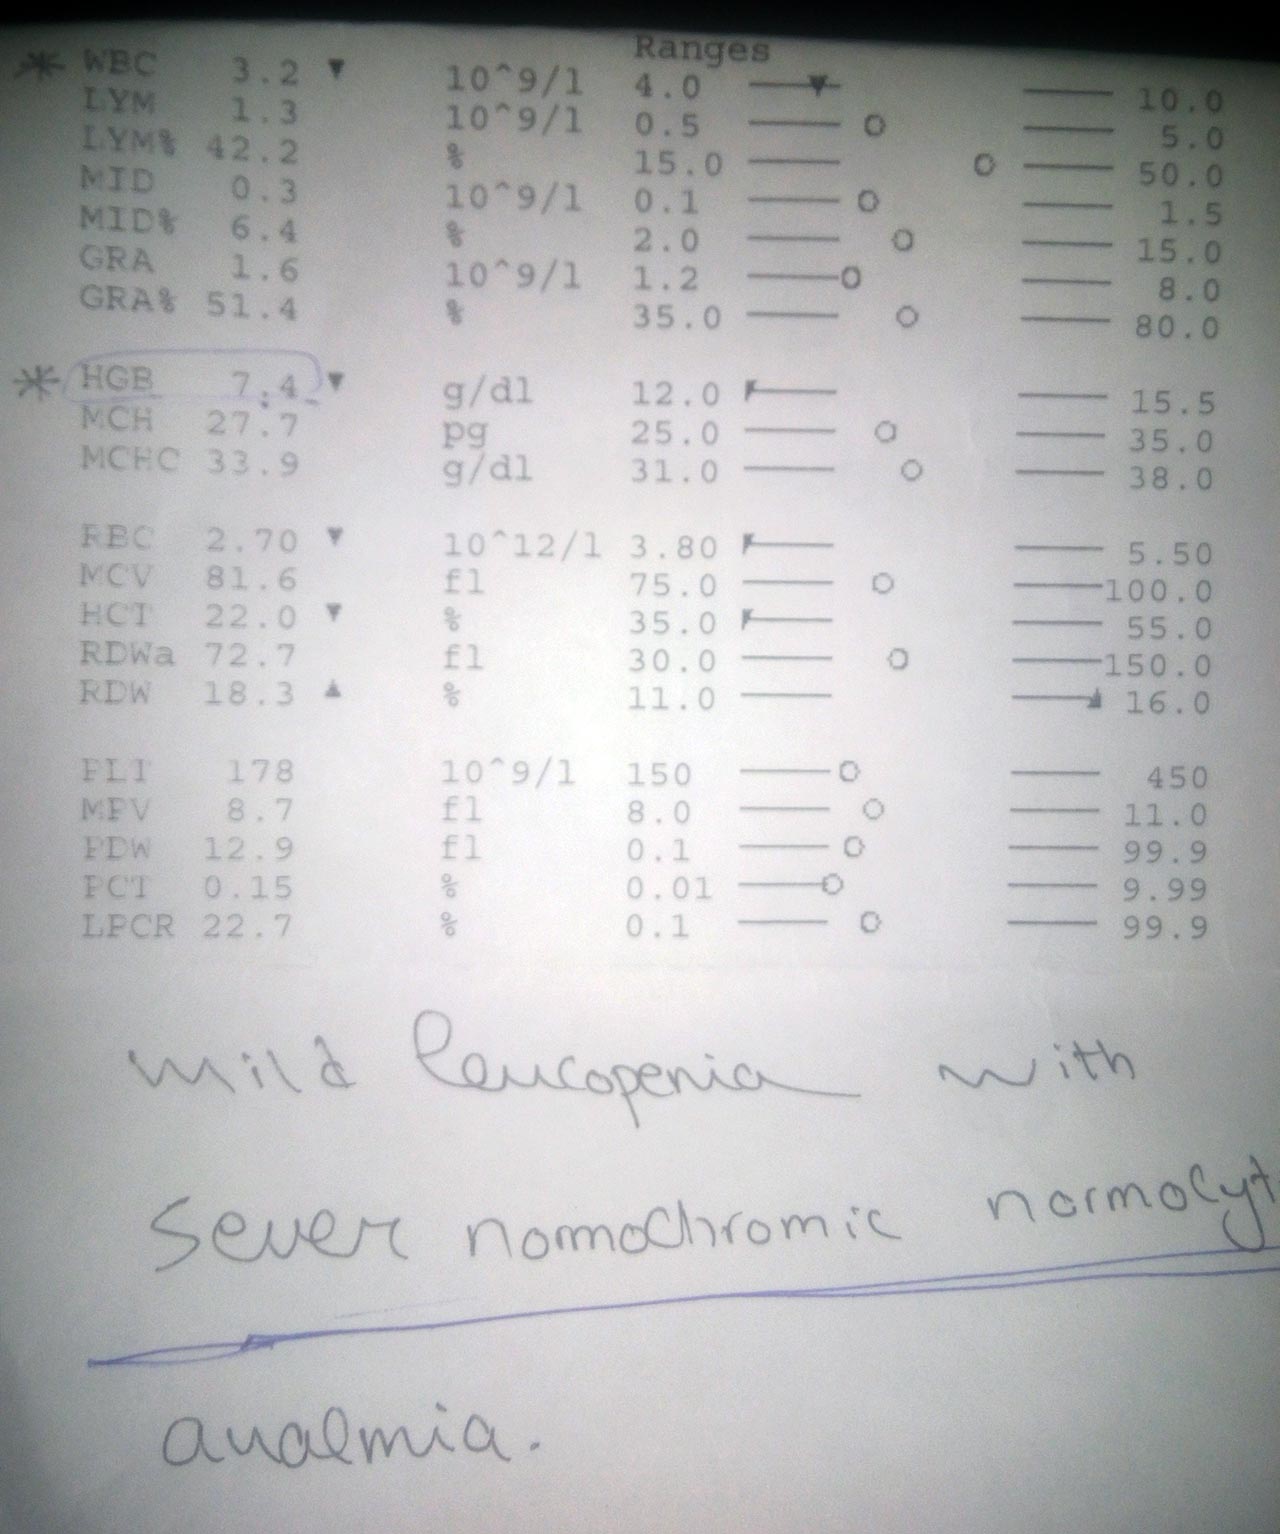 Ranges
* WBC 3.2 ▼ 10^9/l 4.0 10.0
LYM 1.3 10^9/l 0.5 5.0
LYM% 42.2 % 15.0 50.0
MID 0.3 10^9/l 0.1 1.5
MID% 6.4 % 2.0 15.0
GRA 1.6 10^9/l 1.2 8.0
GRA% 51.4 % 35.0 80.0
* HGB 7.4 ▼ g/dl 12.0 15.5
MCH 27.7 pg 25.0 35.0
MCHC 33.9 g/dl 31.0 38.0
RBC 2.70 ▼ 10^12/l 3.80 5.50
MCV 81.6 fl 75.0 100.0
HCT 22.0 ▼ % 35.0 55.0
RDWa 72.7 fl 30.0 150.0
RDW 18.3 ▲ % 11.0 16.0
PLT 178 10^9/l 150 450
MPV 8.7 fl 8.0 11.0
PDW 12.9 fl 0.1 99.9
PCT 0.15 % 0.01 9.99
LPCR 22.7 % 0.1 99.9
mild leucopenia with
Sever normochromic normocyt
anaemia.